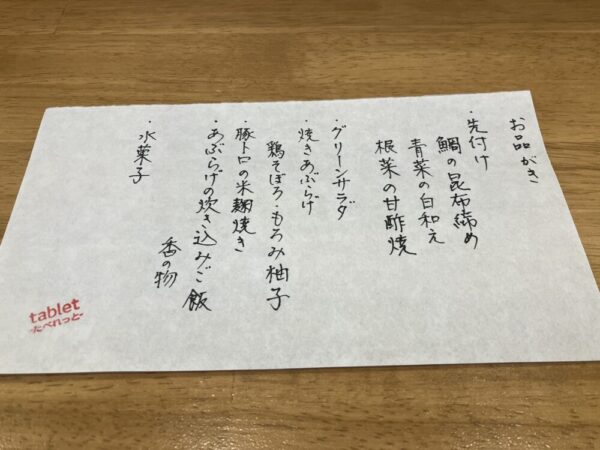 お品がき
・先付け
鯛の昆布締め
青菜の白和え
根菜の甘酢焼
・グリーンサラダ
・焼きあぶらげ
鶏そぼろ・もろみ柚子
・豚トロの米麹焼き
・あぶらげの炊き込みご飯
香の物
・水菓子
tablet
-たべれっと-